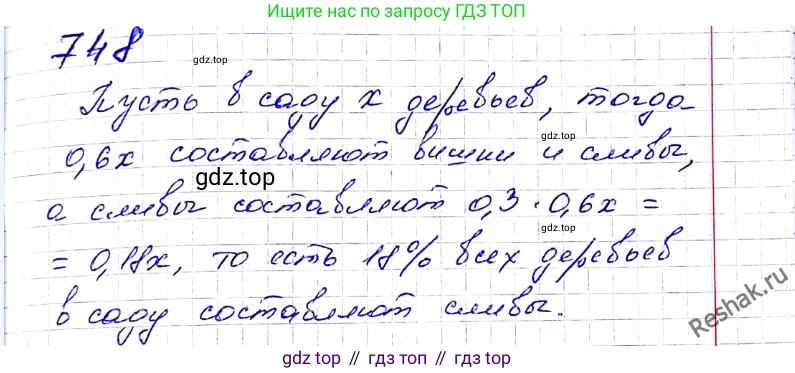 Ищите нас по запросу ГДЗ ТОП
748
gdz.top
Пусть в саду x деревьев, тогда
gdz.top
0,6x составляют вишни и сливы,
gdz.top
а сливы составляют 0,3 · 0,6x =
= 0,18x, то есть 18% всех деревьев
в саду составляют сливы.
Reshak.ru
gdz top // гдз топ // gdz top